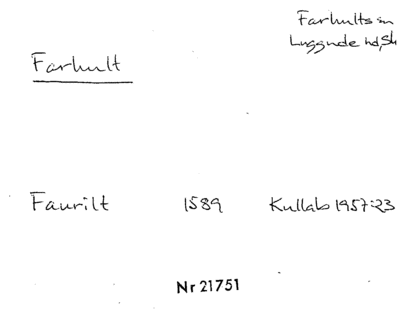 Farhults sn
Luggude hd, Sk
Farhult
Faurilt 1589 Kullab 1957:23
Nr 21751